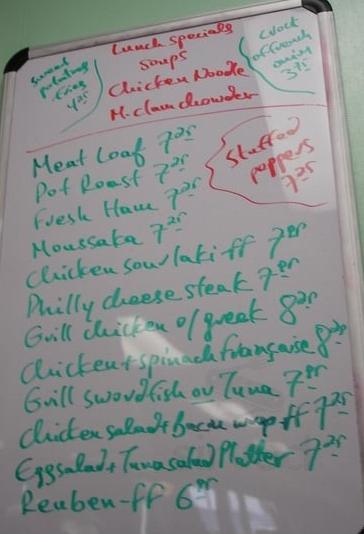 Lunch specials
Soups
Chicken Noodle
M. clam chowder
Sweet potatoe fries 4 25
Crock of french onion 3 75
Stuffed peppers 7 25
Meat Loaf 7 25
Pot Roast 7 25
Fresh Ham 7 25
Moussaka 7 25
Chicken souvlaki ff 7 95
Philly cheese steak 7 95
Grill chicken o/greek 8 25
Chicken + spinach française 8 25
Grill swordfish or Tuna 7 95
Chicken salad + bacon wrap ff 7 25
Egg salad + Tuna salad Platter 7 25
Reuben-ff 6 95